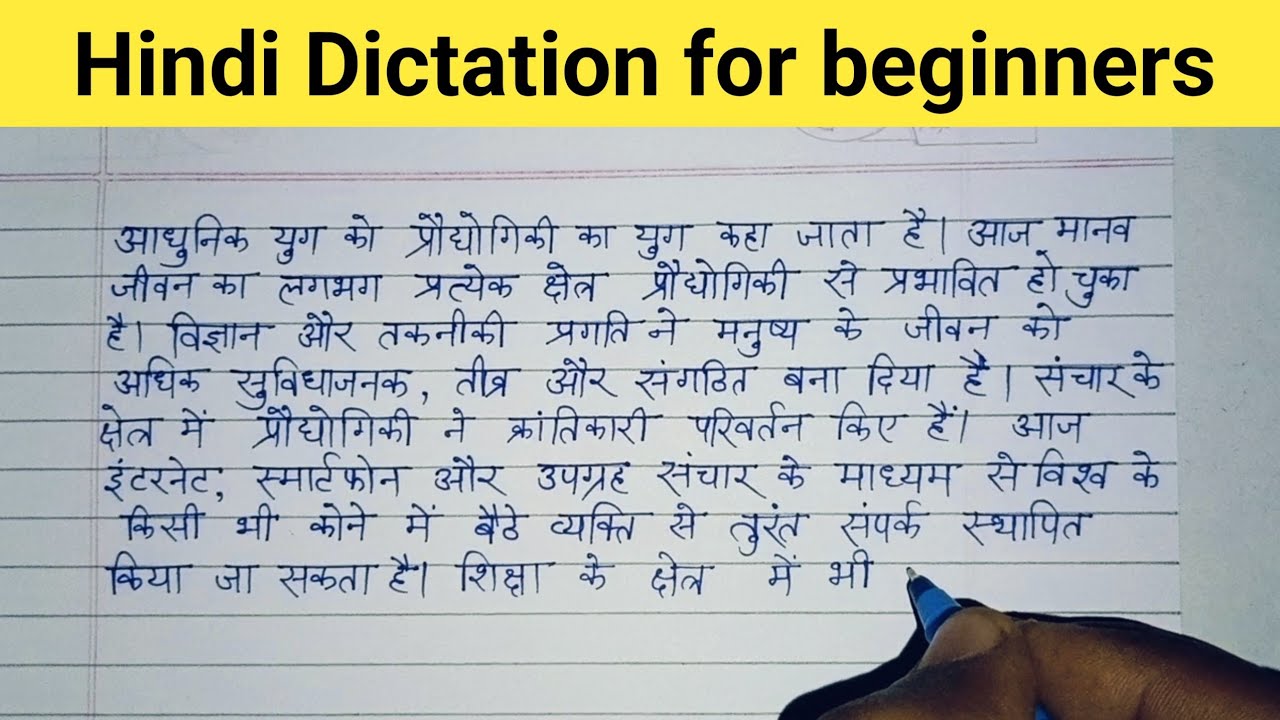 Hindi Dictation for beginners
आधुनिक युग को प्रौद्योगिकी का युग कहा जाता है। आज मानव
जीवन का लगभग प्रत्येक क्षेत्र प्रौद्योगिकी से प्रभावित हो चुका
है। विज्ञान और तकनीकी प्रगति ने मनुष्य के जीवन को
अधिक सुविधाजनक, तीव्र और संगठित बना दिया है। संचार के
क्षेत्र में प्रौद्योगिकी ने क्रांतिकारी परिवर्तन किए हैं। आज
इंटरनेट, स्मार्टफोन और उपग्रह संचार के माध्यम से विश्व के
किसी भी कोने में बैठे व्यक्ति से तुरंत संपर्क स्थापित
किया जा सकता है। शिक्षा के क्षेत्र में भी